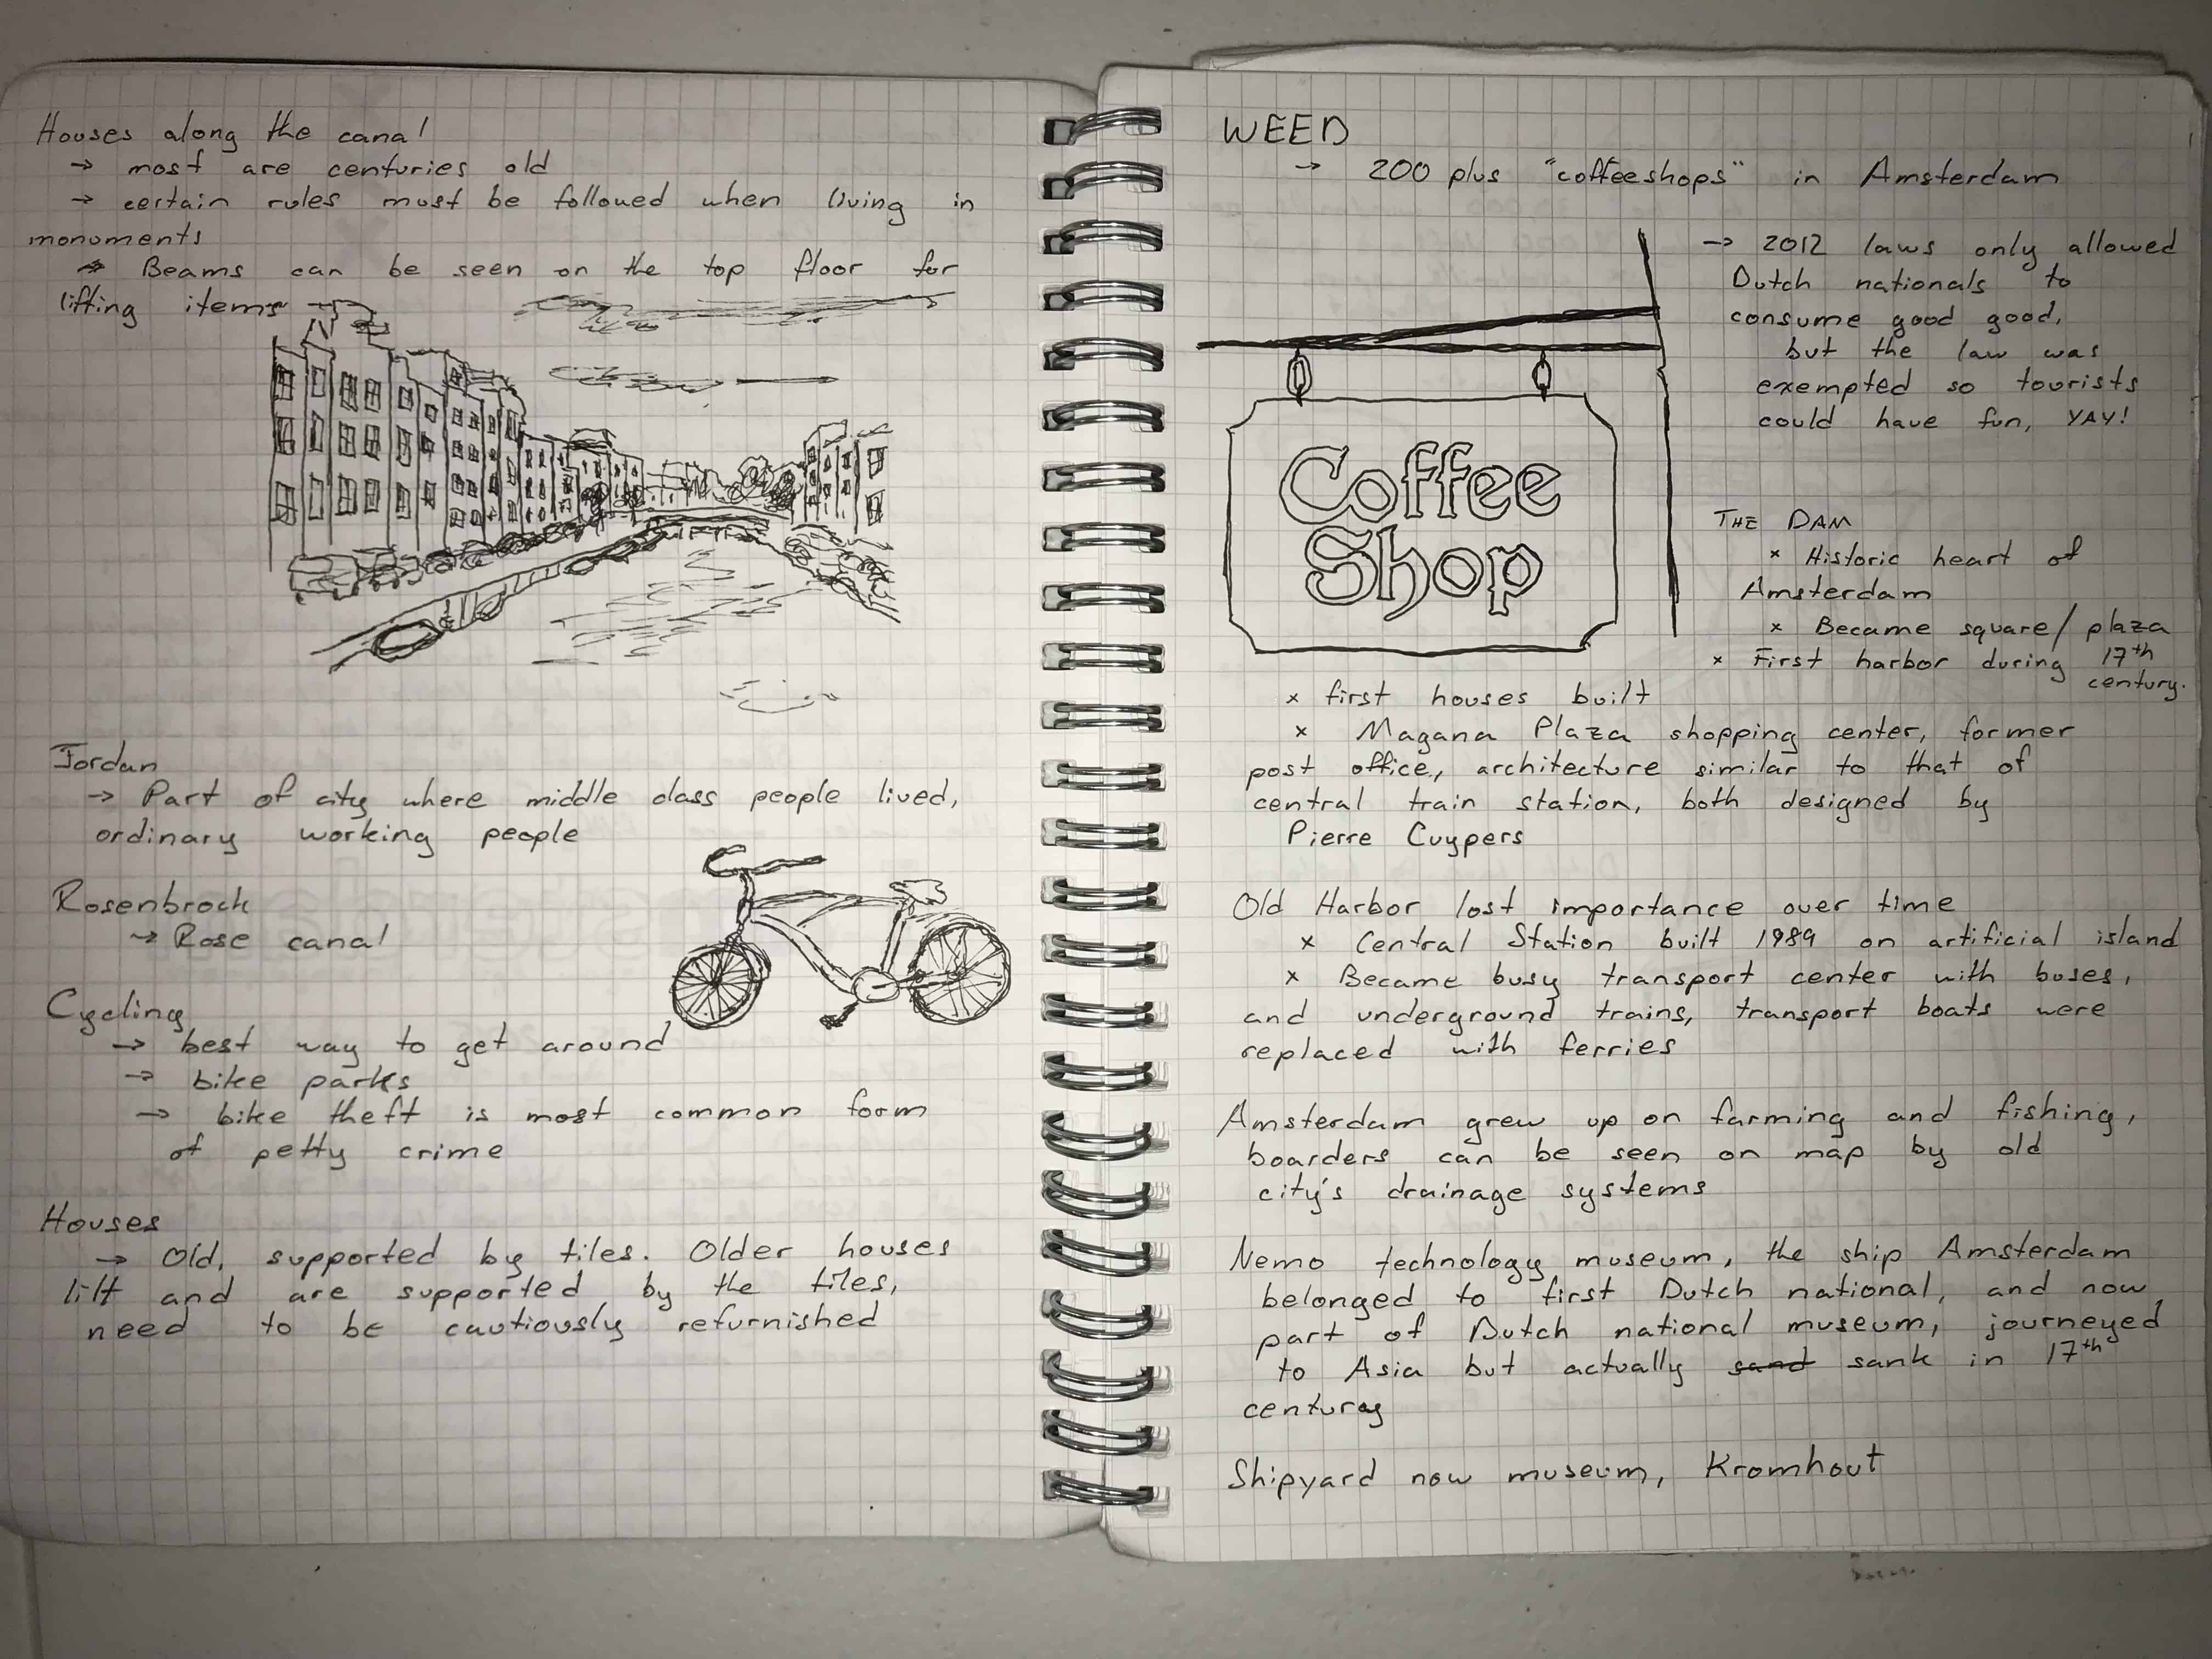 Houses along the canal
→ most are centuries old
→ certain rules must be followed when living in
monuments
→ Beams can be seen on the top floor for
lifting items
Jordan
→ Part of city where middle class people lived,
ordinary working people
Rosenbrock
→ Rose canal
Cycling
→ best way to get around
→ bike parks
→ bike theft is most common form
of petty crime
Houses
→ Old, supported by tiles. Older houses
lilt and are supported by the tiles,
need to be cautiously refurnished
WEED
→ 200 plus "coffeeshops" in Amsterdam
→ 2012 laws only allowed
Dutch nationals to
consume good good,
but the law was
exempted so tourists
could have fun, YAY!
Coffee
Shop
THE DAM
x Historic heart of
Amsterdam
x Became square/plaza
x First harbor during 17th
century.
x first houses built
x Magana Plaza shopping center, former
post office, architecture similar to that of
central train station, both designed by
Pierre Cuypers
Old Harbor lost importance over time
x Central Station built 1989 on artificial island
x Became busy transport center with buses,
and underground trains, transport boats were
replaced with ferries
Amsterdam grew up on farming and fishing,
boarders can be seen on map by old
city's drainage systems
Nemo technology museum, the ship Amsterdam
belonged to first Dutch national, and now
part of Dutch national museum, journeyed
to Asia but actually sand sank in 17th
century
Shipyard now museum, Kromhout